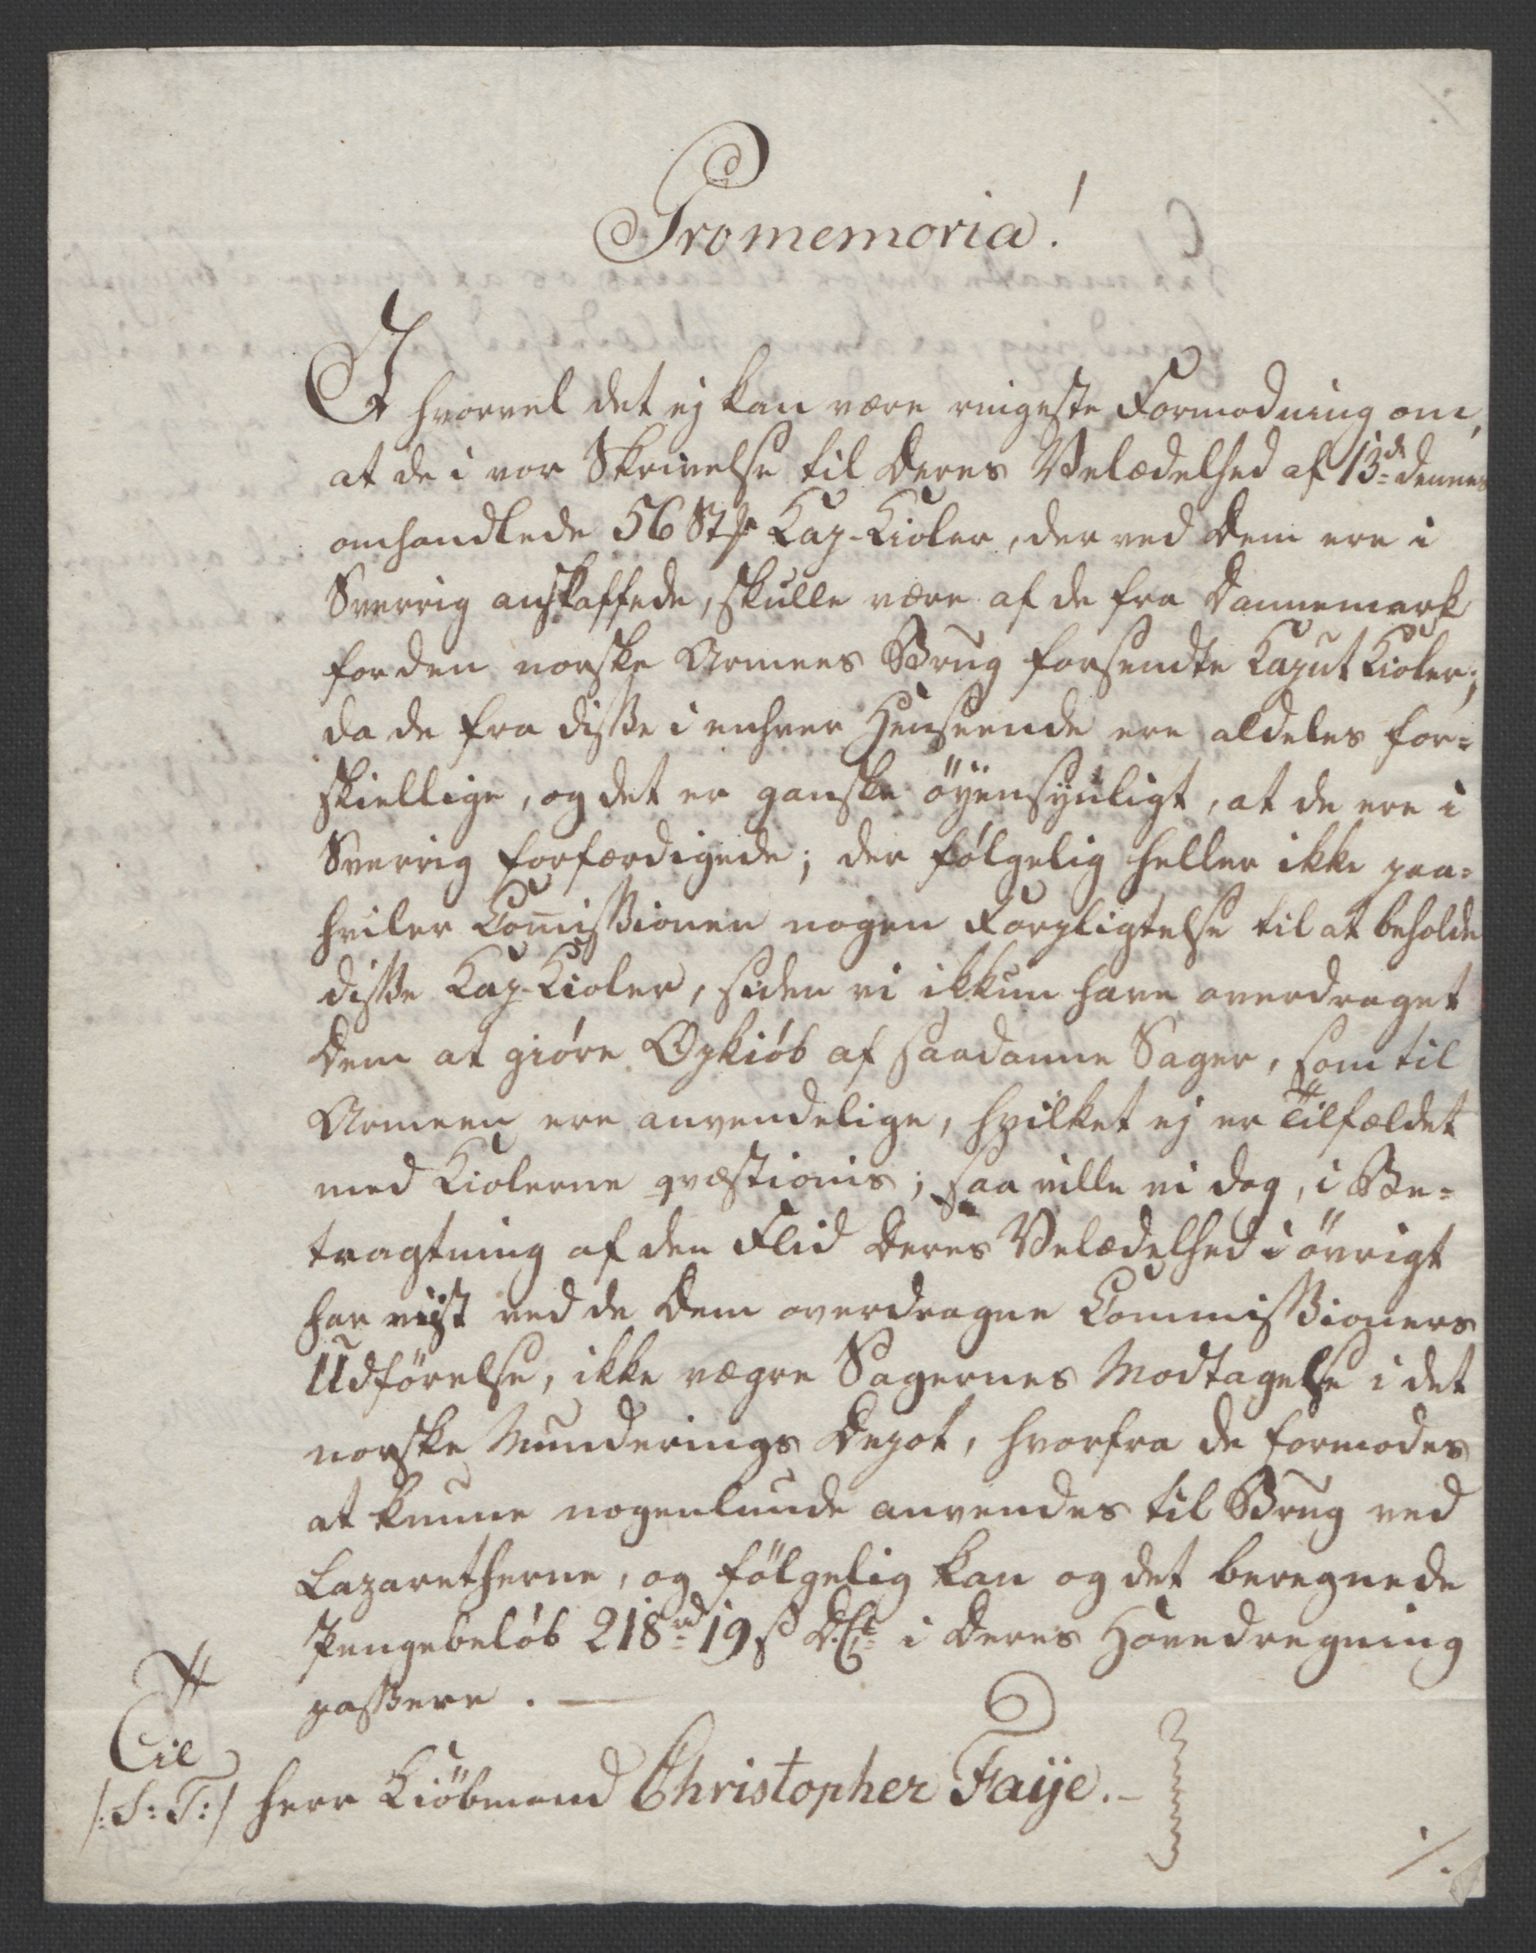 Promemoria!
Ihvorvel det ej kan være ringeste Formodning om,
at de i vor Skrivelse til Deres Velædelhed af 13de dennes
omhandlede 56 Stkr Kap-Kioler, der ved Dem ere i
Sverrig anskaffede, skulle være af de fra Dannemark
for den norske Armees Brug forsendte Kaput Kioler;
da de fra disse i enhver Henseende ere aldeles for=
skiellige, og det er ganske öÿensÿnligt, at de ere i
Sverrig forfærdigede; der fölgelig heller ikke paa=
hviler Com̅issionen nogen Forpligtelse til at beholde
disse Kap-Kioler, siden vi ikkun have overdraget
Dem at giöre Opkiöb af saadanne Sager, som til
Armeen ere anvendelige, hvilket ej er Tilfældet
med Kiolerne qvæstionis; saa ville vi dog, i Be=
tragtning af den Flid Deres Velædelhed i övrigt
har viist ved de Dem overdragne Commissioners
Udförelse, ikke vægre Sagernes Modtagelse i det
norske Munderings Depot, hvorfra de formodes
at kunne nogenlunde anvendes til Brug ved
Lazaretherne, og fölgelig kan og det beregnede
Pengebelöb 218 rd 19 s D.Ct i Deres Hovedregning
passere. —
Til
/:S:T:/ Herr Kiöbmand Christopher Faÿe.—
./.